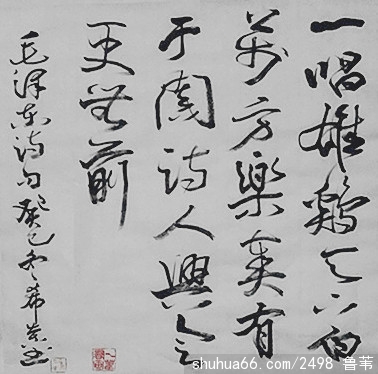 一唱雄鷄天下白
萬方樂奏有
于闐诗人興会
更無前
毛泽东诗句癸巳冬希书
shuhua66.com/2498 鲁苇